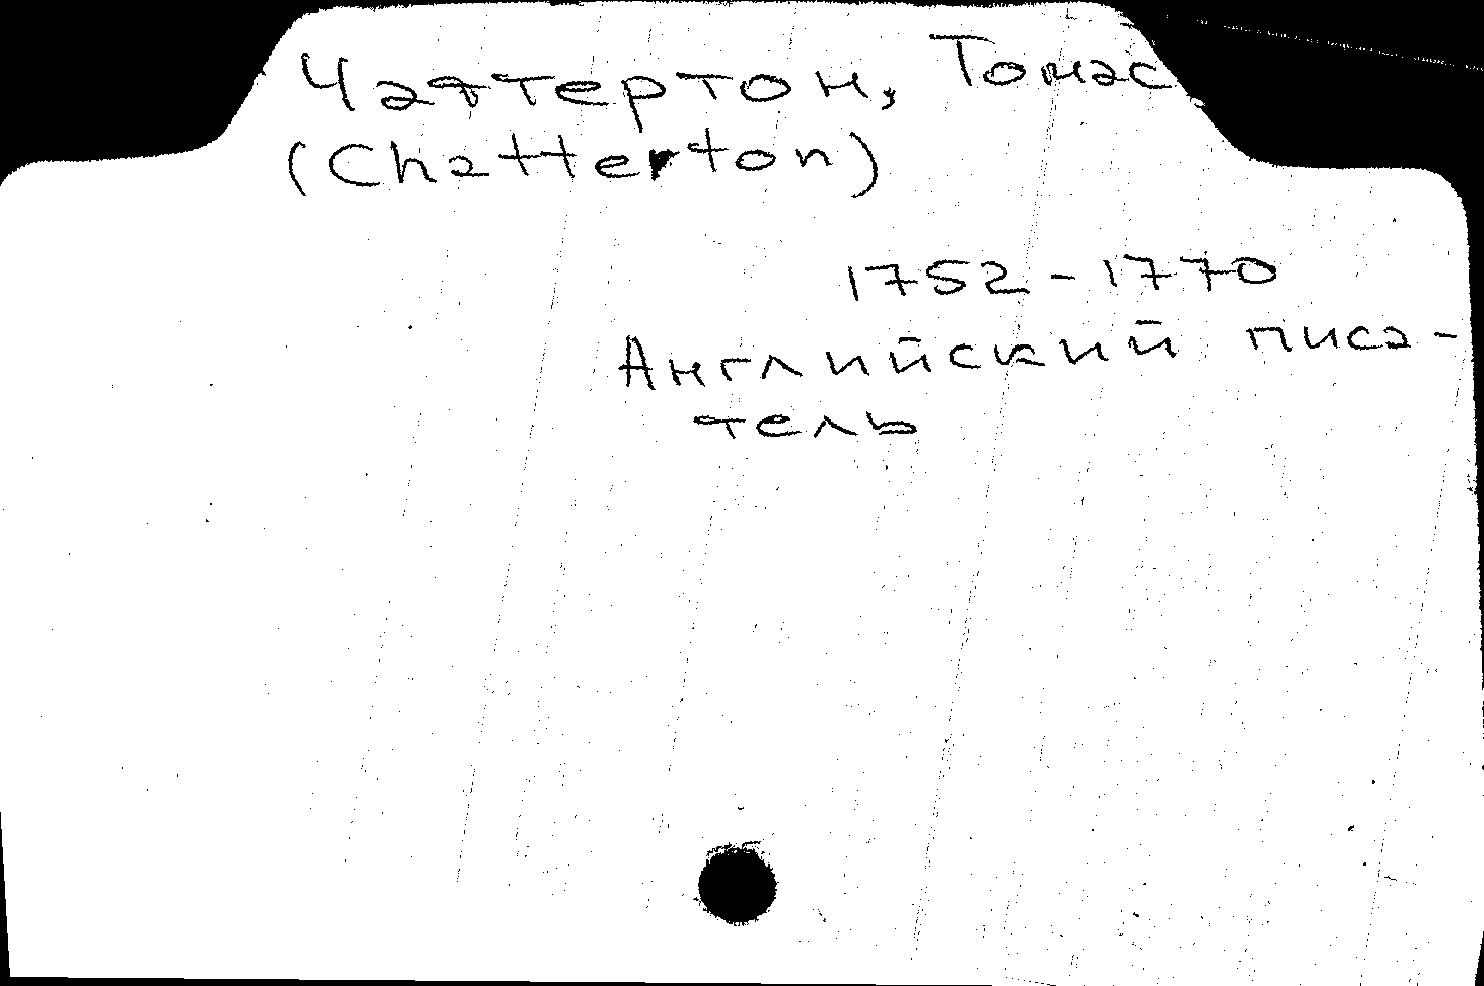 Чаттертон, Томас
(Chatterton)
1752-1770
Английский писа-
тель